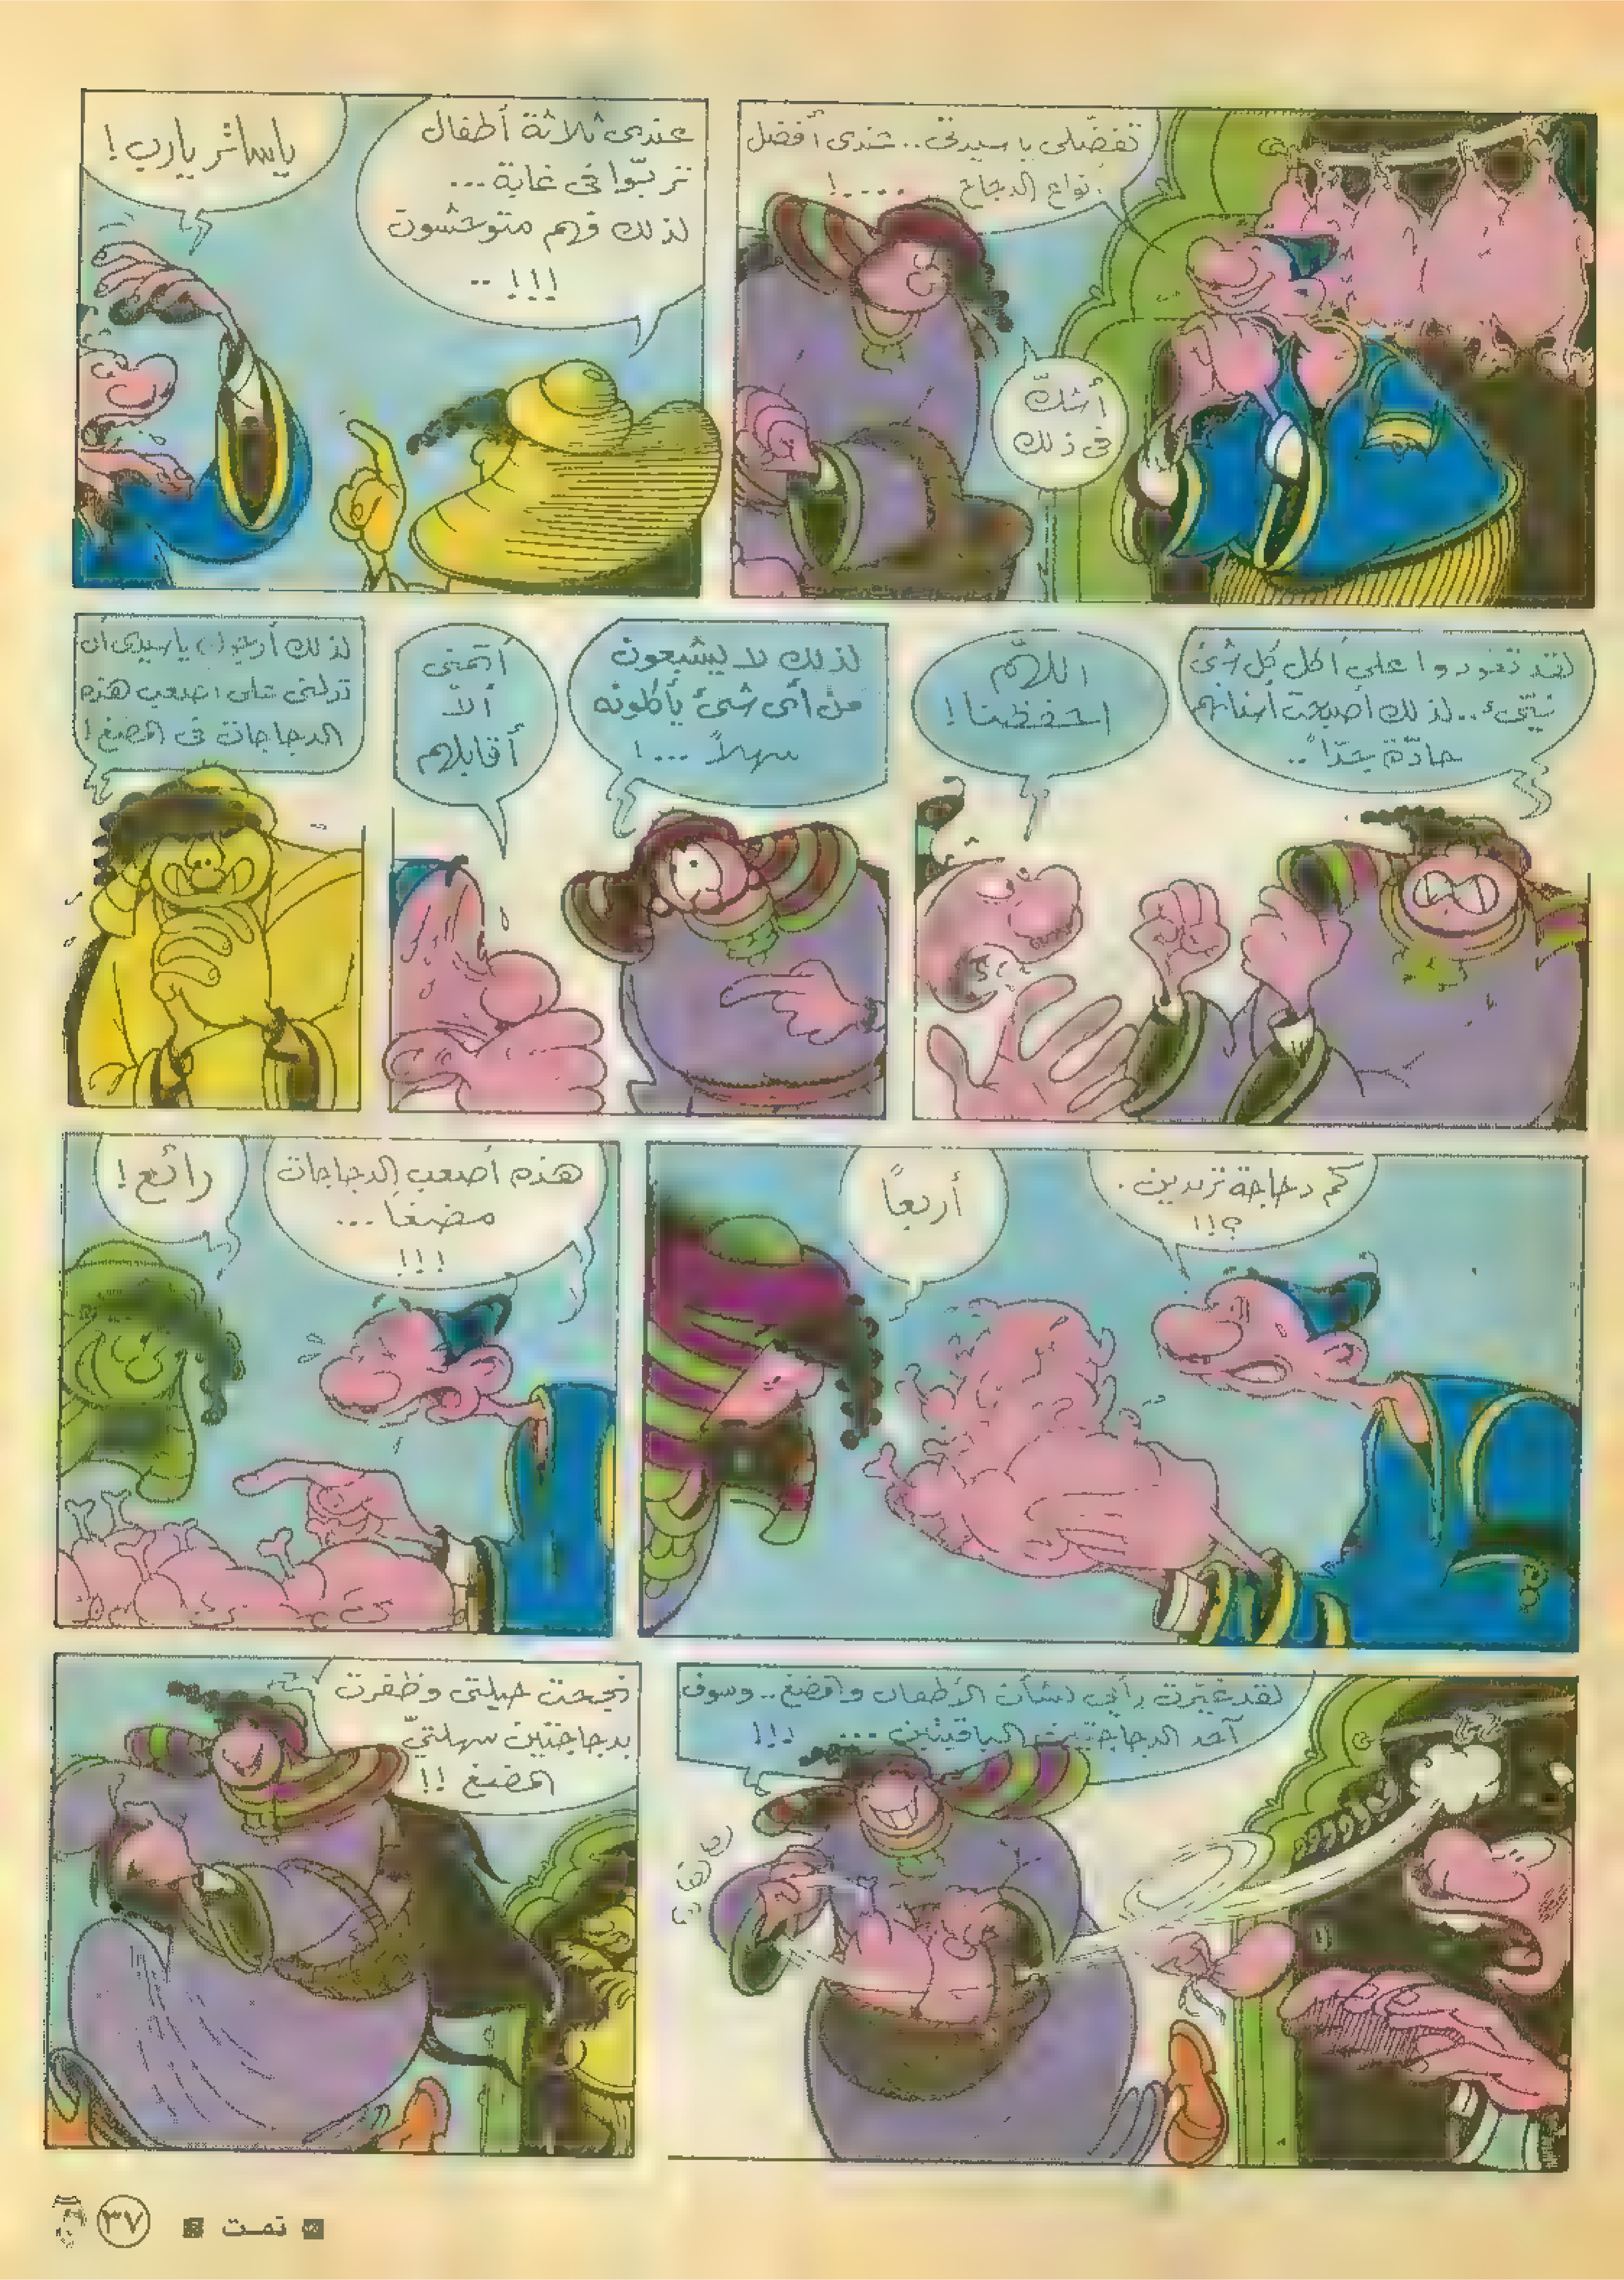 تفضّلى يا سيدتى.. عندى أفضل
أنواع الدجاج ....!
أشكّ
فى ذلك
عندى ثلاثة أطفال
تربّوا فى غابة...
لذلك فهم متوحشون
..!!!
ياساتر يارب!
لقد تعودوا على أكل كل شئ
نيّئ.. لذلك أصبحت أسنانهم
حادّة جدّاً..
اللهّم
احفظنا!
لذلك لا يشبعون
من أى شئ يأكلونه
سهلاً ...!
أتمنى
ألاّ
أقابلهم
لذلك أرجوك ياسيدى أن
تدلنى على أصعب هذه
الدجاجات فى المضغ!
كم دجاجة تريدين.
؟!!
أربعاً
هذه أصعب الدجاجات
مضغاً...
!!!
رائع!
لقد غيّرت رأيى بشأن الأطفال والمضغ.. وسوف
آخذ الدجاجتين الباقيتين ... !!!
نجحت حيلتى وظفرت
بدجاجتين سهلتىّ
المضغ !!
تمت
٣٧